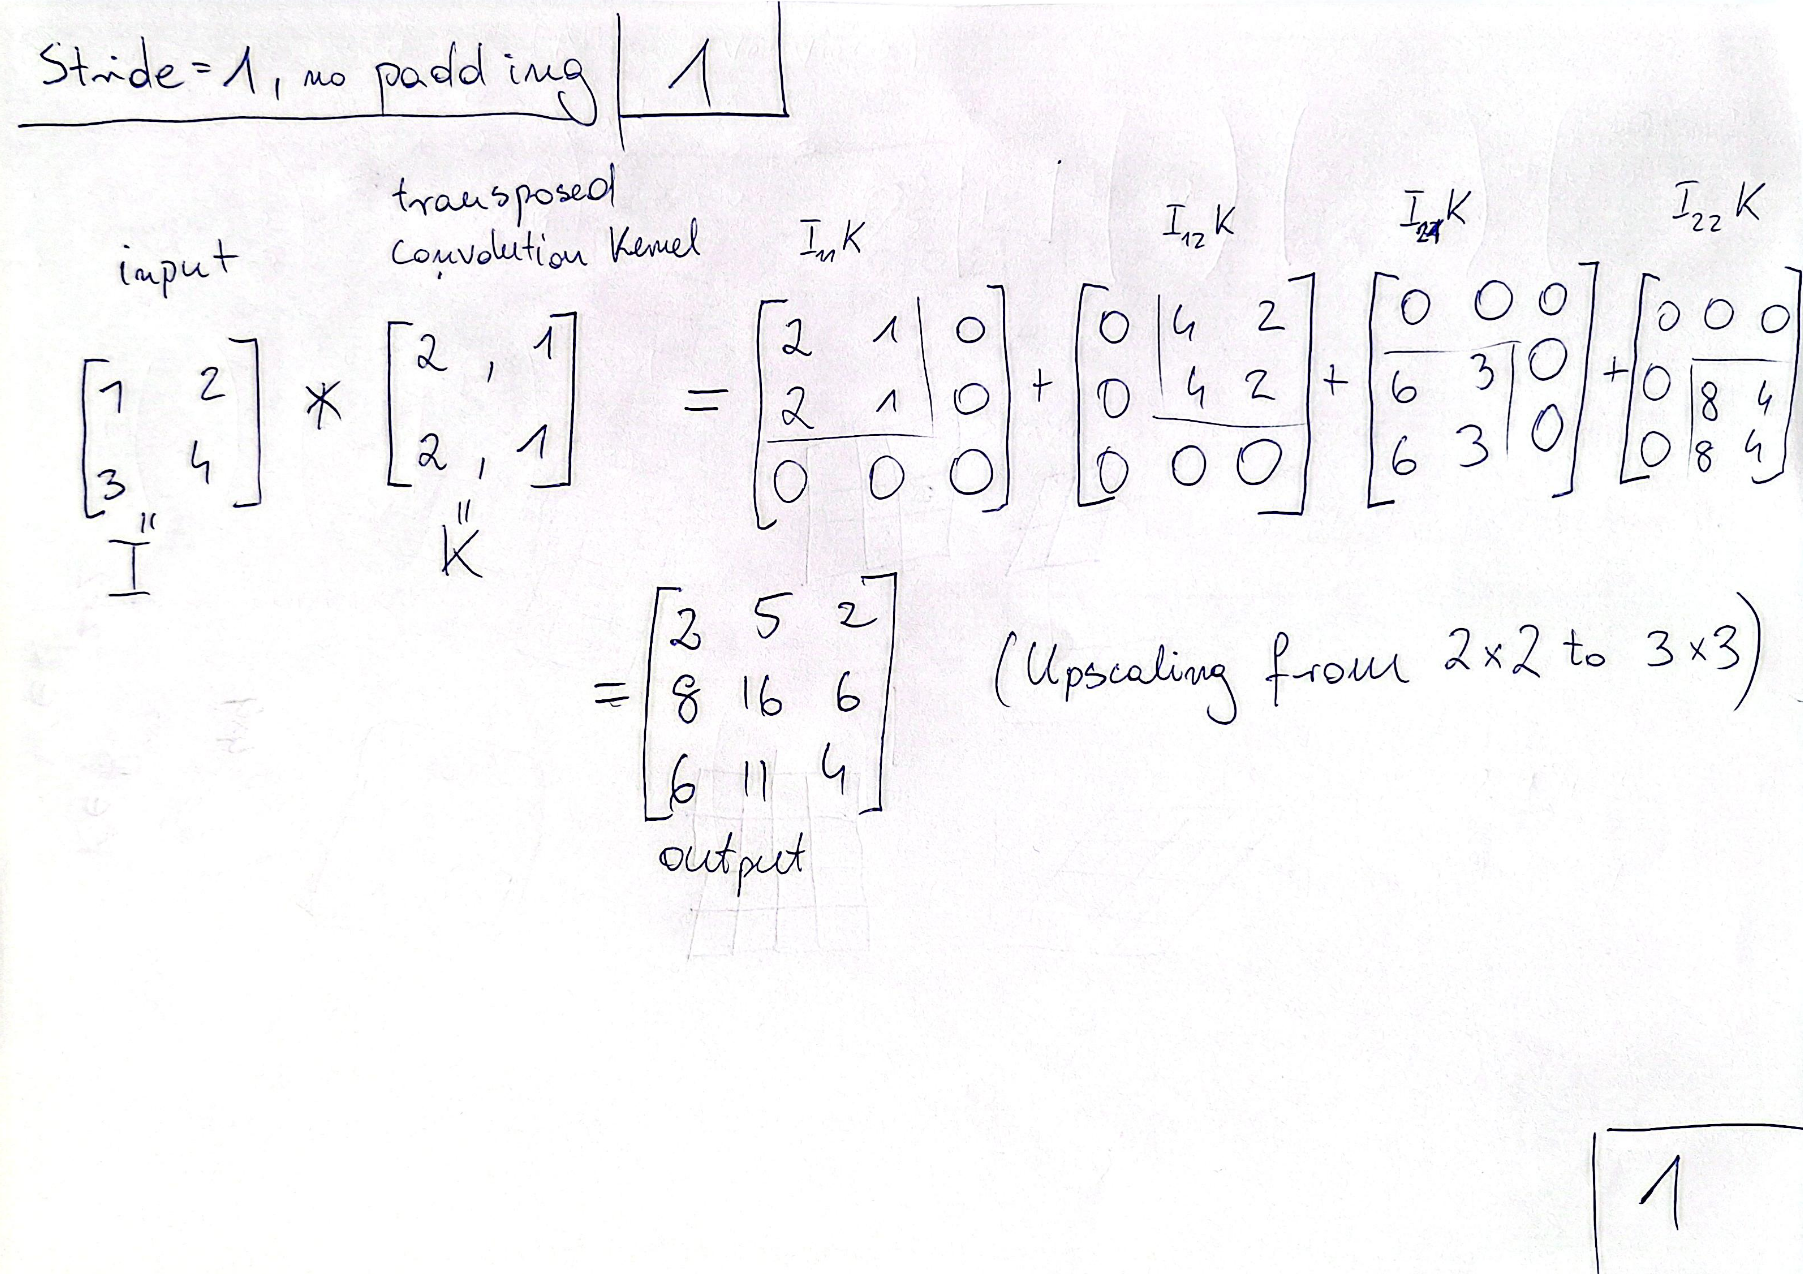 Stride=1, no padding | 1
transposed
convolution Kernel
input
I₁₁K
I₁₂K
I₂₁K
I₂₂K
[1 2; 3 4] * [2, 1; 2, 1] = [2 1 0; 2 1 0; 0 0 0] + [0 4 2; 0 4 2; 0 0 0] + [0 0 0; 6 3 0; 6 3 0] + [0 0 0; 0 8 4; 0 8 4]
" "
I K
= [2 5 2; 8 16 6; 6 11 4] (Upscaling from 2×2 to 3×3)
output
1